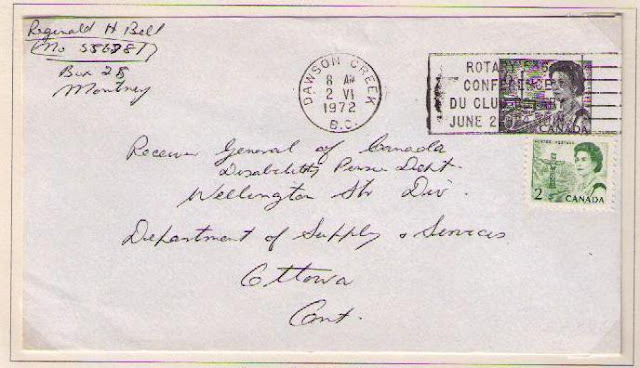 Reginald H Bell
(No 55687)
Box 28
Montney
DAWSON CREEK
8 AM
2 VI
1972
B.C.
ROTARY
CONFERENCE
DU CLUB ROTARY
JUNE 2
CANADA
POSTES POSTAGE
2
CANADA
Receiver General of Canada
Disability Pension Dept.
Wellington Str Div.
Department of Supply & Services
Ottawa
Ont.